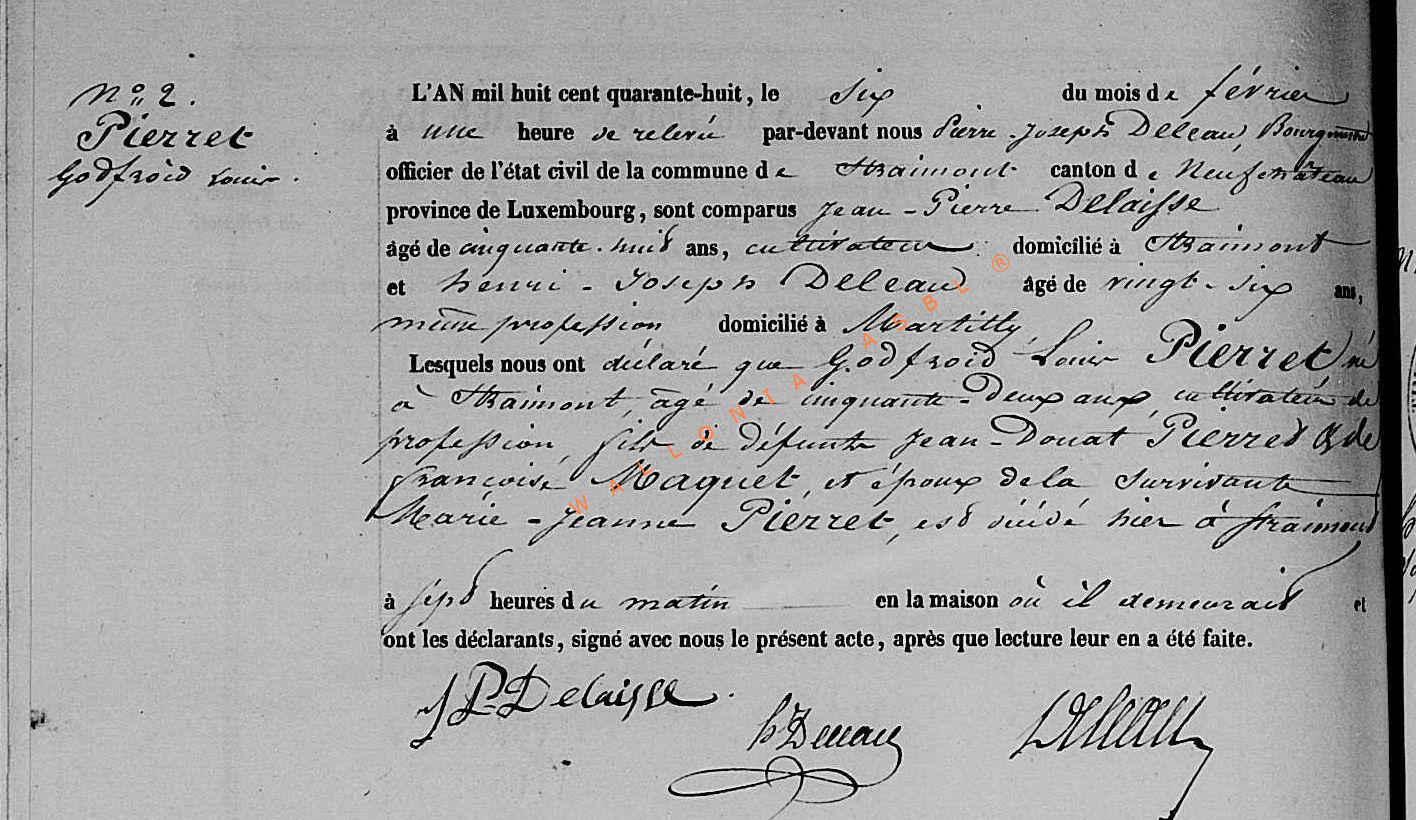 N° 2.
Pierret
Godfroid Louis.
L'AN mil huit cent quarante-huit, le six du mois de février
à une heure de relevée par-devant nous Pierre-Joseph Deleau, Bourgmestre
officier de l'état civil de la commune de Straimont canton de Neufchateau
province de Luxembourg, sont comparus Jean-Pierre Delaisse
âgé de cinquante-huit ans, cultivateur domicilié à Straimont
et henri-Joseph Deleau âgé de vingt-six ans,
même profession domicilié à Martilly
Lesquels nous ont déclaré que Godfroid Louis Pierret né
à Straimont, âgé de cinquante-deux ans, cultivateur de
profession, fils de défunts Jean-Donat Pierret & de
françoise Maquet, et époux de la survivante
Marie-Jeanne Pierret, est décédé hier à Straimont
à sept heures du matin en la maison où il demeurait et
ont les déclarants, signé avec nous le présent acte, après que lecture leur en a été faite.
JP Delaisse.
h Deleau
Deleau
WALLONIA ASBL ®